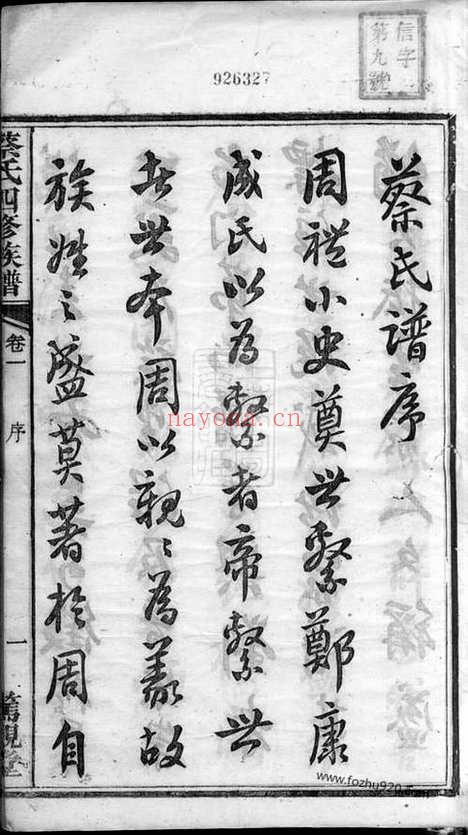 信字
第九號
926327
蔡氏譜序
周禮小史奠世繫鄭康
成氏以為繫者帝繫世
者世本周以親〻為義故
族姓之盛莫著於周自
蔡氏四修族譜
卷一
序
一
nayona.cn
www.fozhu920.com